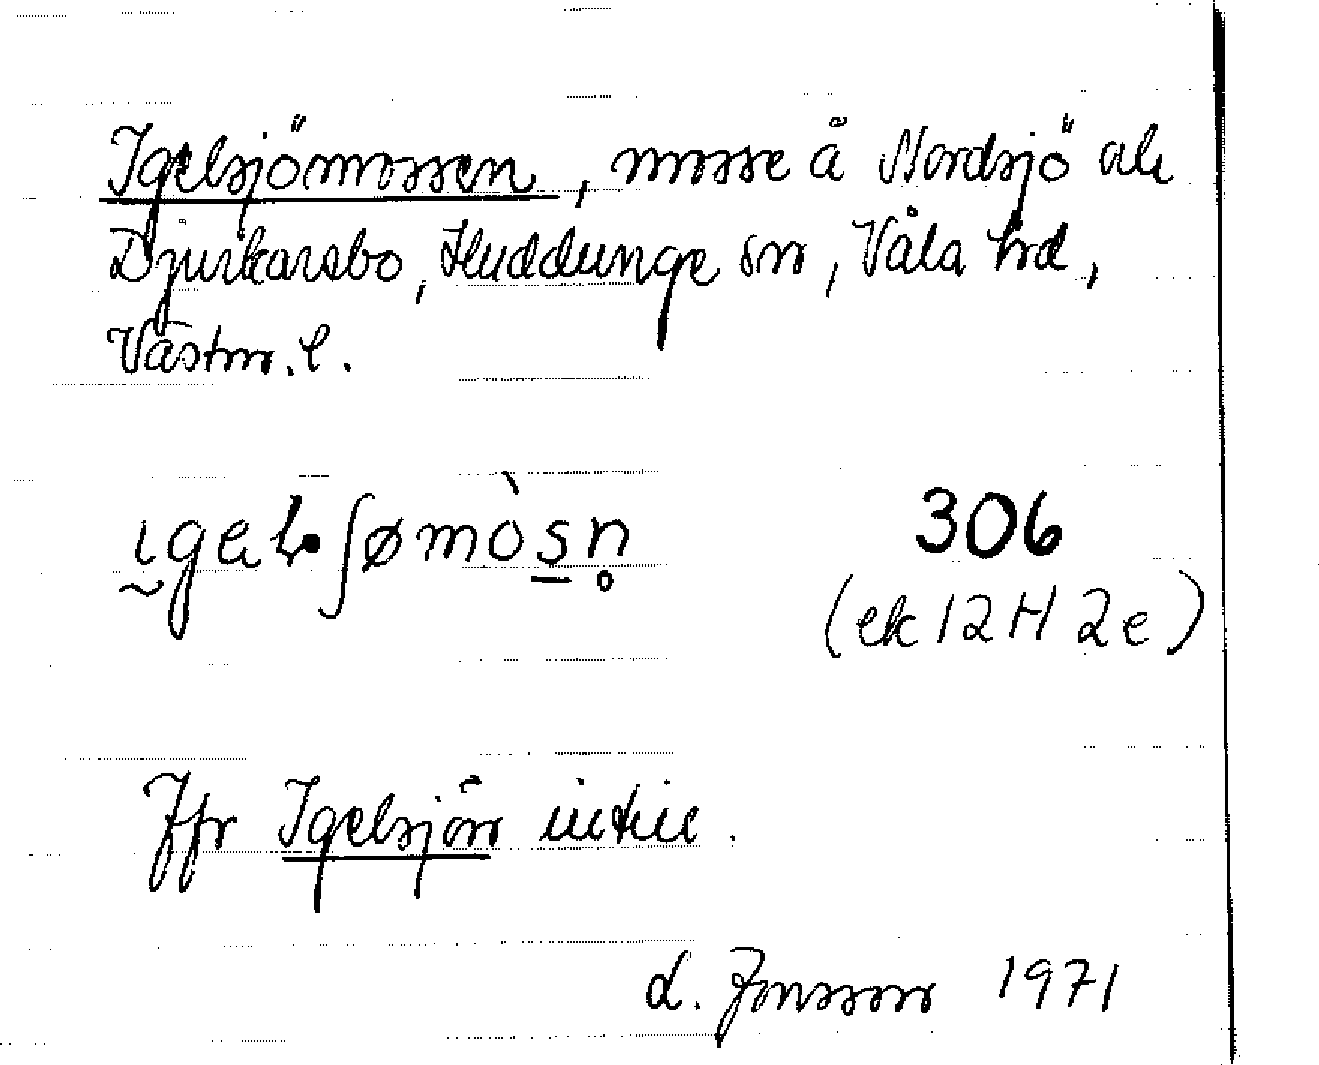 Igelsjömossen, mosse å Nordsjö och
Djurkarsbo, Huddunge sn, Våla hd,
Västm. l.
306
(ek 12H 2e)
Jfr Igelsjön intill.
L. Jonsson 1971